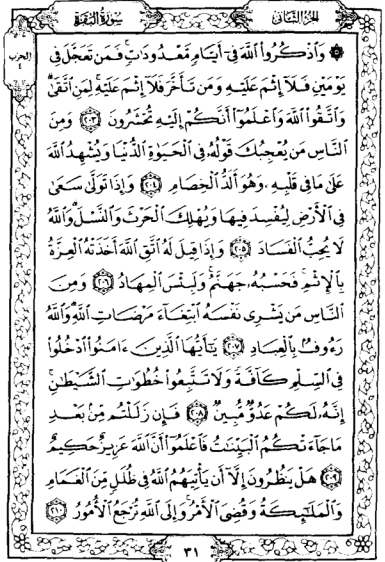 سُورَةُ البَقَرَةِ
الجُزْءُ الثَّانِي
الحِزْب
۞ وَٱذْكُرُوا۟ ٱللَّهَ فِىٓ أَيَّامٍ مَّعْدُودَٰتٍ فَمَن تَعَجَّلَ فِى
يَوْمَيْنِ فَلَآ إِثْمَ عَلَيْهِ وَمَن تَأَخَّرَ فَلَآ إِثْمَ عَلَيْهِ لِمَنِ ٱتَّقَىٰ
وَٱتَّقُوا۟ ٱللَّهَ وَٱعْلَمُوٓا۟ أَنَّكُمْ إِلَيْهِ تُحْشَرُونَ ٢٠٣ وَمِنَ
ٱلنَّاسِ مَن يُعْجِبُكَ قَوْلُهُۥ فِى ٱلْحَيَوٰةِ ٱلدُّنْيَا وَيُشْهِدُ ٱللَّهَ
عَلَىٰ مَا فِى قَلْبِهِۦ وَهُوَ أَلَدُّ ٱلْخِصَامِ ٢٠٤ وَإِذَا تَوَلَّىٰ سَعَىٰ
فِى ٱلْأَرْضِ لِيُفْسِدَ فِيهَا وَيُهْلِكَ ٱلْحَرْثَ وَٱلنَّسْلَ وَٱللَّهُ
لَا يُحِبُّ ٱلْفَسَادَ ٢٠٥ وَإِذَا قِيلَ لَهُ ٱتَّقِ ٱللَّهَ أَخَذَتْهُ ٱلْعِزَّةُ
بِٱلْإِثْمِ فَحَسْبُهُۥ جَهَنَّمُ وَلَبِئْسَ ٱلْمِهَادُ ٢٠٦ وَمِنَ
ٱلنَّاسِ مَن يَشْرِى نَفْسَهُ ٱبْتِغَآءَ مَرْضَاتِ ٱللَّهِ وَٱللَّهُ
رَءُوفٌۢ بِٱلْعِبَادِ ٢٠٧ يَٰٓأَيُّهَا ٱلَّذِينَ ءَامَنُوا۟ ٱدْخُلُوا۟
فِى ٱلسِّلْمِ كَآفَّةً وَلَا تَتَّبِعُوا۟ خُطُوَٰتِ ٱلشَّيْطَٰنِ
إِنَّهُۥ لَكُمْ عَدُوٌّ مُّبِينٌ ٢٠٨ فَإِن زَلَلْتُم مِّنۢ بَعْدِ
مَا جَآءَتْكُمُ ٱلْبَيِّنَٰتُ فَٱعْلَمُوٓا۟ أَنَّ ٱللَّهَ عَزِيزٌ حَكِيمٌ
٢٠٩ هَلْ يَنظُرُونَ إِلَّآ أَن يَأْتِيَهُمُ ٱللَّهُ فِى ظُلَلٍ مِّنَ ٱلْغَمَامِ
وَٱلْمَلَٰٓئِكَةُ وَقُضِىَ ٱلْأَمْرُ وَإِلَى ٱللَّهِ تُرْجَعُ ٱلْأُمُورُ ٢١٠
٣١